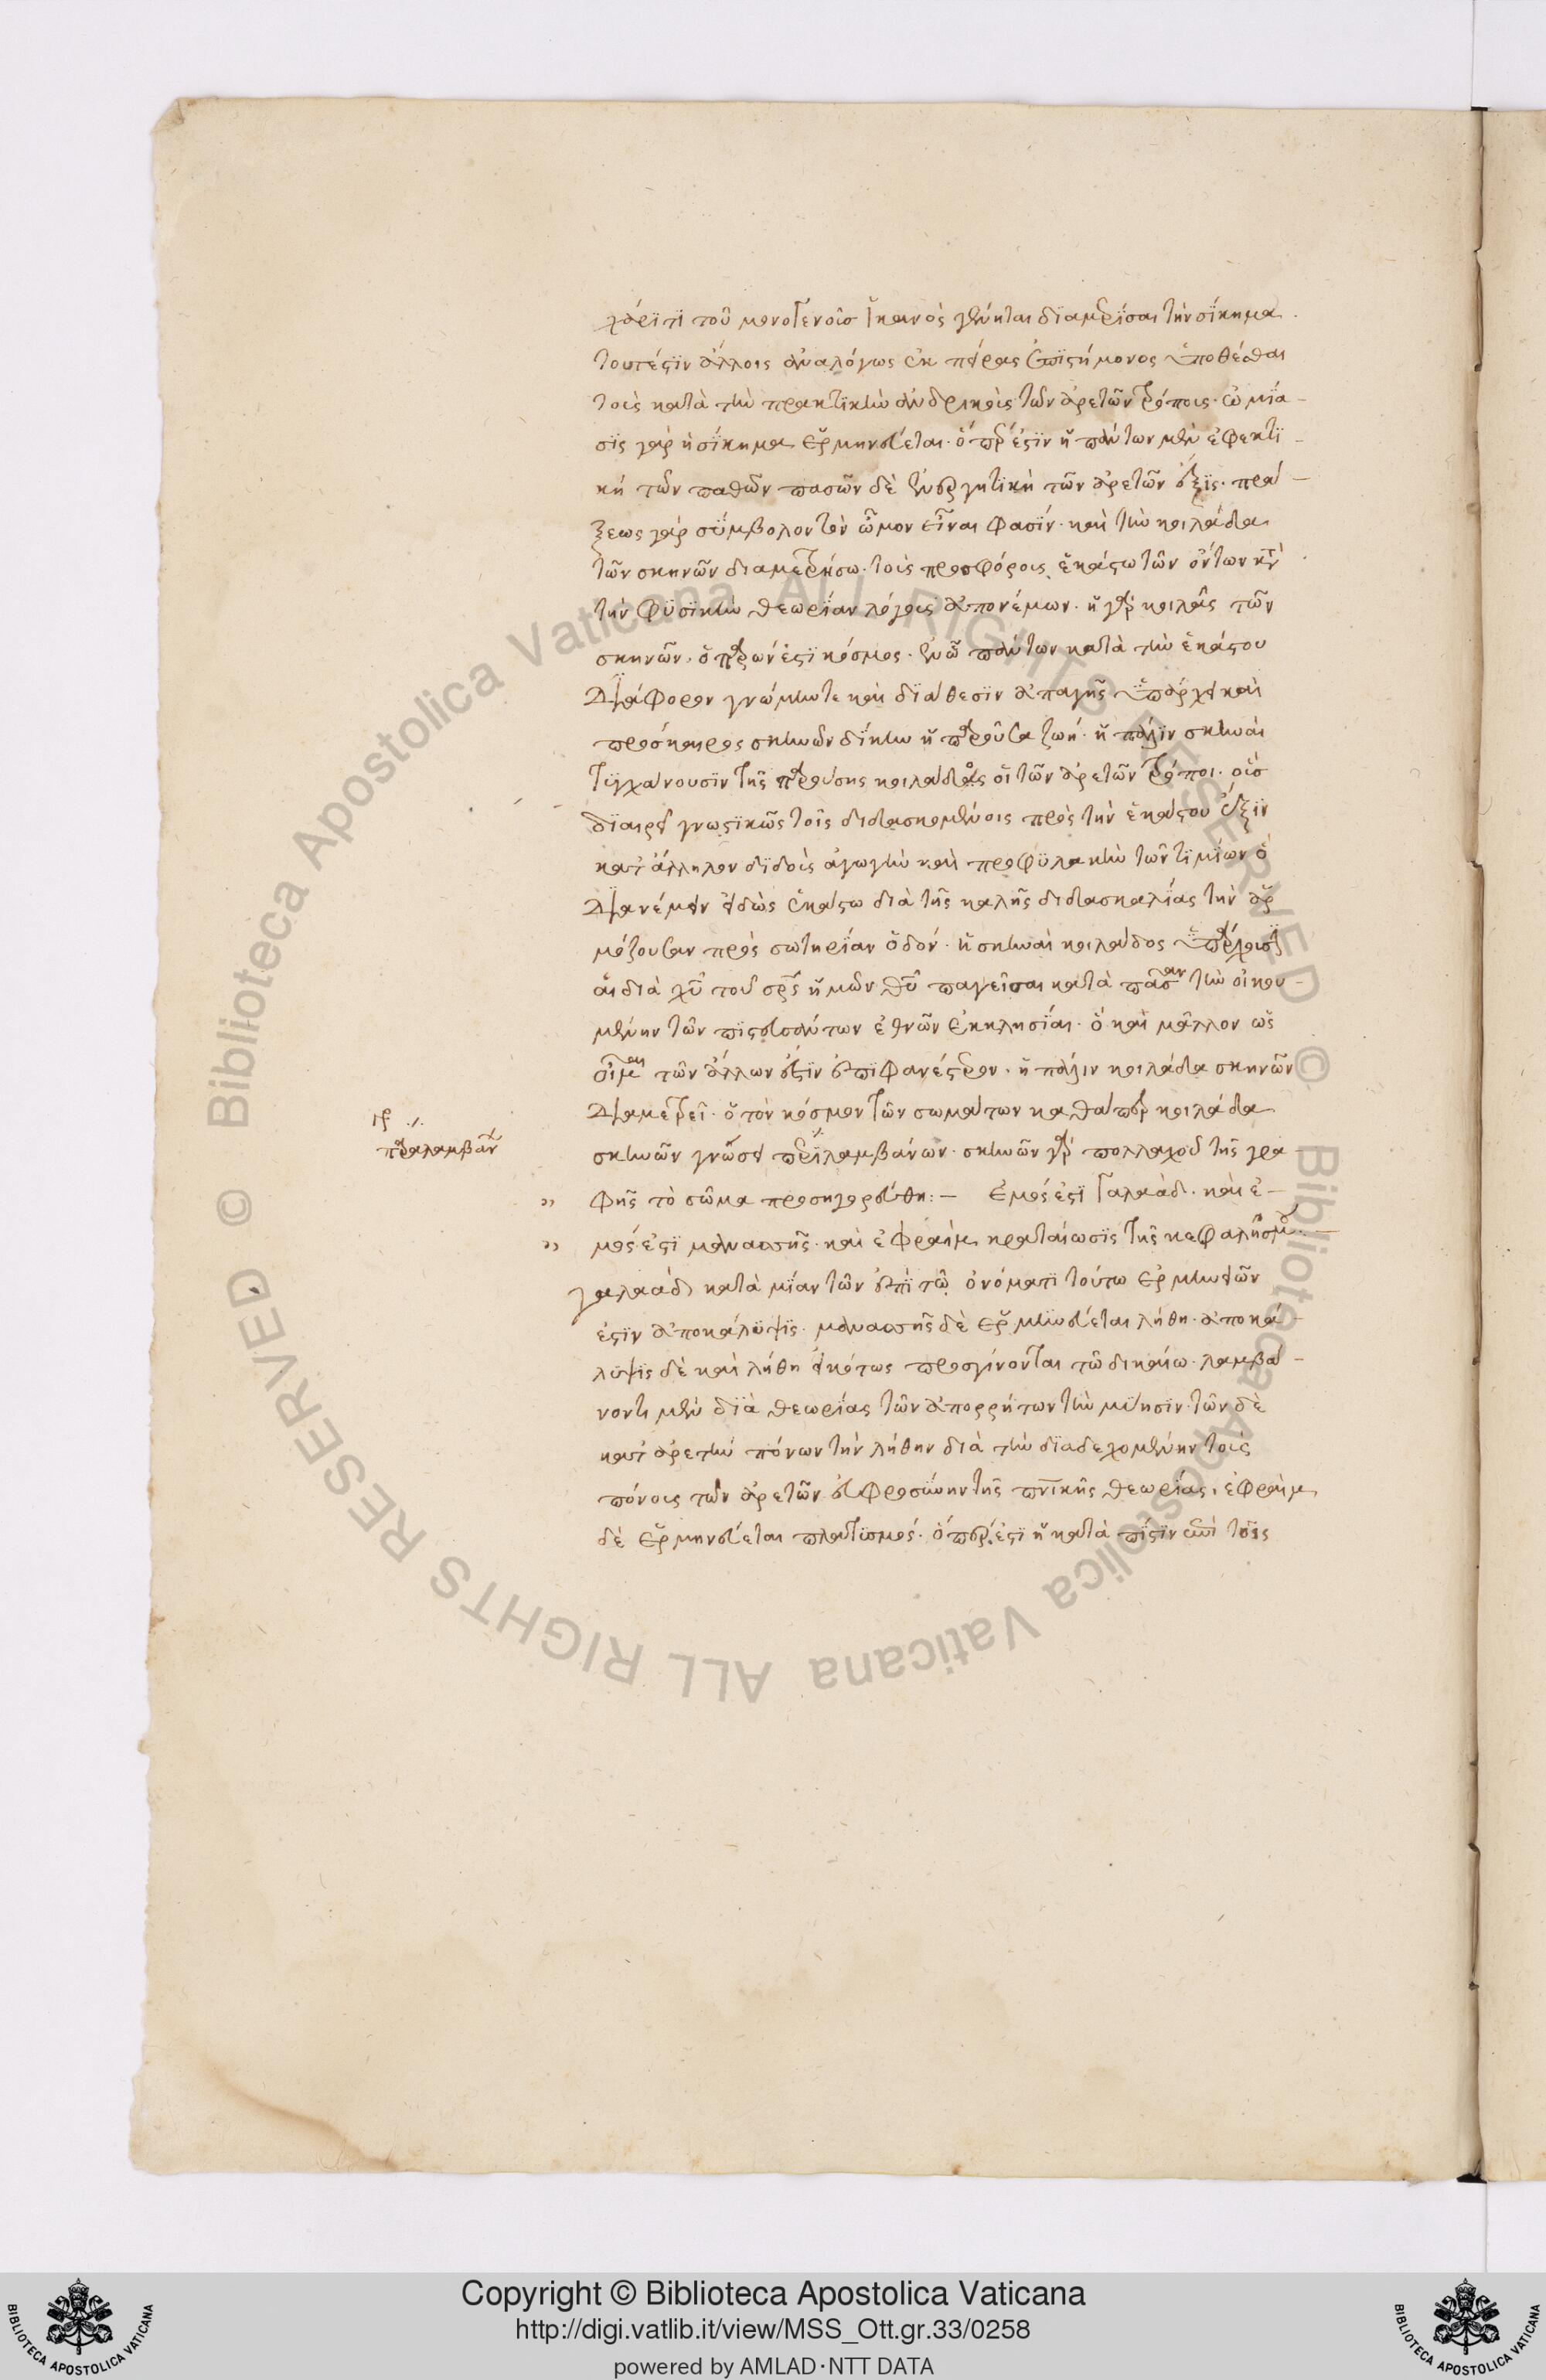 χάριτι τοῦ μονογενοῦς ἱκανὸς γένηται διαμερίσαι τὴν σίκημα.
τουτέστιν ἄλλοις ἀναλόγως ἐκ πείρας ἐπιστήμονος ὑποθέσθαι
τοὺς κατὰ τὴν πρακτικὴν ἀνδρικοὺς τῶν ἀρετῶν τρόπους· ὠμία-
σις γὰρ ἡ σίκημα ἑρμηνεύεται· ὅπερ ἐστὶν ἡ πάντων μὲν ἐφεκτι-
κὴ τῶν παθῶν πασῶν δὲ ἐνεργητικὴ τῶν ἀρετῶν ἕξις· πρά-
ξεως γὰρ σύμβολον τὸν ὦμον εἶναι φασίν· καὶ τὴν κοιλάδα
τῶν σκηνῶν διαμετρήσω· τοὺς προσφόρους ἑκάστῳ τῶν ὄντων κατὰ
τὴν φυσικὴν θεωρίαν λόγους ἀπονέμων· ἡ γὰρ κοιλὰς τῶν
σκηνῶν, ὁ παρών ἐστι κόσμος· ἐν ᾧ πάντων κατὰ τὴν ἑκάστου
διάφορον γνώμην τε καὶ διάθεσιν ἀπαγὴς ὑπάρχει καὶ
πρόσκαιρος σκηνῶν δίκην ἡ παροῦσα ζωή· ἢ πάλιν σκηναὶ
τυγχάνουσιν τῆς παρούσης κοιλάδος οἱ τῶν ἀρετῶν τρόποι· οὓς
διαιρεῖ γνωστικῶς τοῖς διδασκομένοις πρὸς τὴν ἑκάστου ἕξιν
κατάλληλον διδοὺς ἀγωγὴν καὶ προφυλακὴν τῶν τιμίων ὁ
διανέμειν εἰδὼς ἑκάστῳ διὰ τῆς καλῆς διδασκαλίας τὴν ἁρ
μόζουσαν πρὸς σωτηρίαν ὁδόν· ἢ σκηναὶ κοιλάδος ὑπάρχουσιν
αἱ διὰ χῦ τοῦ σρς ἡμῶν θῦ παγεῖσαι κατὰ πᾶσαν τὴν οἰκου-
μένην τῶν πιστευσάντων ἐθνῶν ἐκκλησίαι· ὃ καὶ μᾶλλον ὡς
οἶμαι τῶν ἄλλων ἐστὶν ἐπιφανέστερον· ἢ πάλιν κοιλάδα σκηνῶν
διαμετρεῖ· ὁ τὸν κόσμον τῶν σωμάτων καθάπερ κοιλάδα
σκηνῶν γνώσει περιλαμβάνων· σκηνῶν γὰρ πολλαχοῦ τῆς γρα-
φῆς τὸ σῶμα προσηγορεύθη:— Ἐμός ἐστι Γαλαάδ· καὶ ἐ-
μός ἐστι μανασσῆς· καὶ ἐφραὶμ κραταίωσις τῆς κεφαλῆς μου·
γαλαὰδ κατὰ μίαν τῶν ἐπὶ τῷ ὀνόματι τούτῳ ἑρμηνειῶν
ἐστὶν ἀποκάλυψις· μανασσῆς δὲ ἑρμηνεύεται λήθη· ἀποκά-
λυψις δὲ καὶ λήθη εἰκότως προσγίνονται τῷ δικαίῳ· λαμβά-
νοντι μὲν διὰ θεωρίας τῶν ἀπορρήτων τὴν μύησιν· τῶν δὲ
κατ' ἀρετὴν πόνων τὴν λήθην διὰ τὴν διαδεχομένην τοὺς
πόνους τῶν ἀρετῶν εὐφροσύνην τῆς πνικῆς θεωρίας, ἐφραὶμ
δὲ ἑρμηνεύεται πλατυσμός· ὅπερ ἐστὶ ἡ κατὰ πίστιν ἐπὶ τοῖς
παραλαμβάνειν